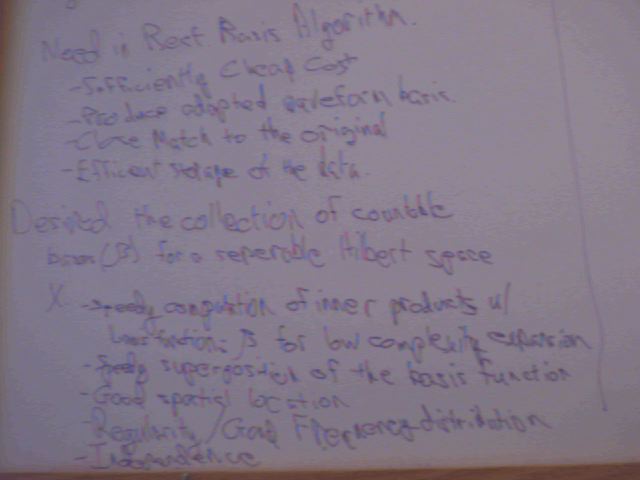 Need in Best Basis Algorithm.
-Sufficiently Cheap Cost
-Produce adapted waveform basis.
-Close Match to the original
-Efficient storage of the data.
Desired the collection of countable
bases (β) for a seperable Hilbert space
X -speedy computation of inner products w/
basis function in β for low complexity expansion
-speedy superposition of the basis function
-Good spatial location
-Regularity/Good Frequency distribution
-Independence